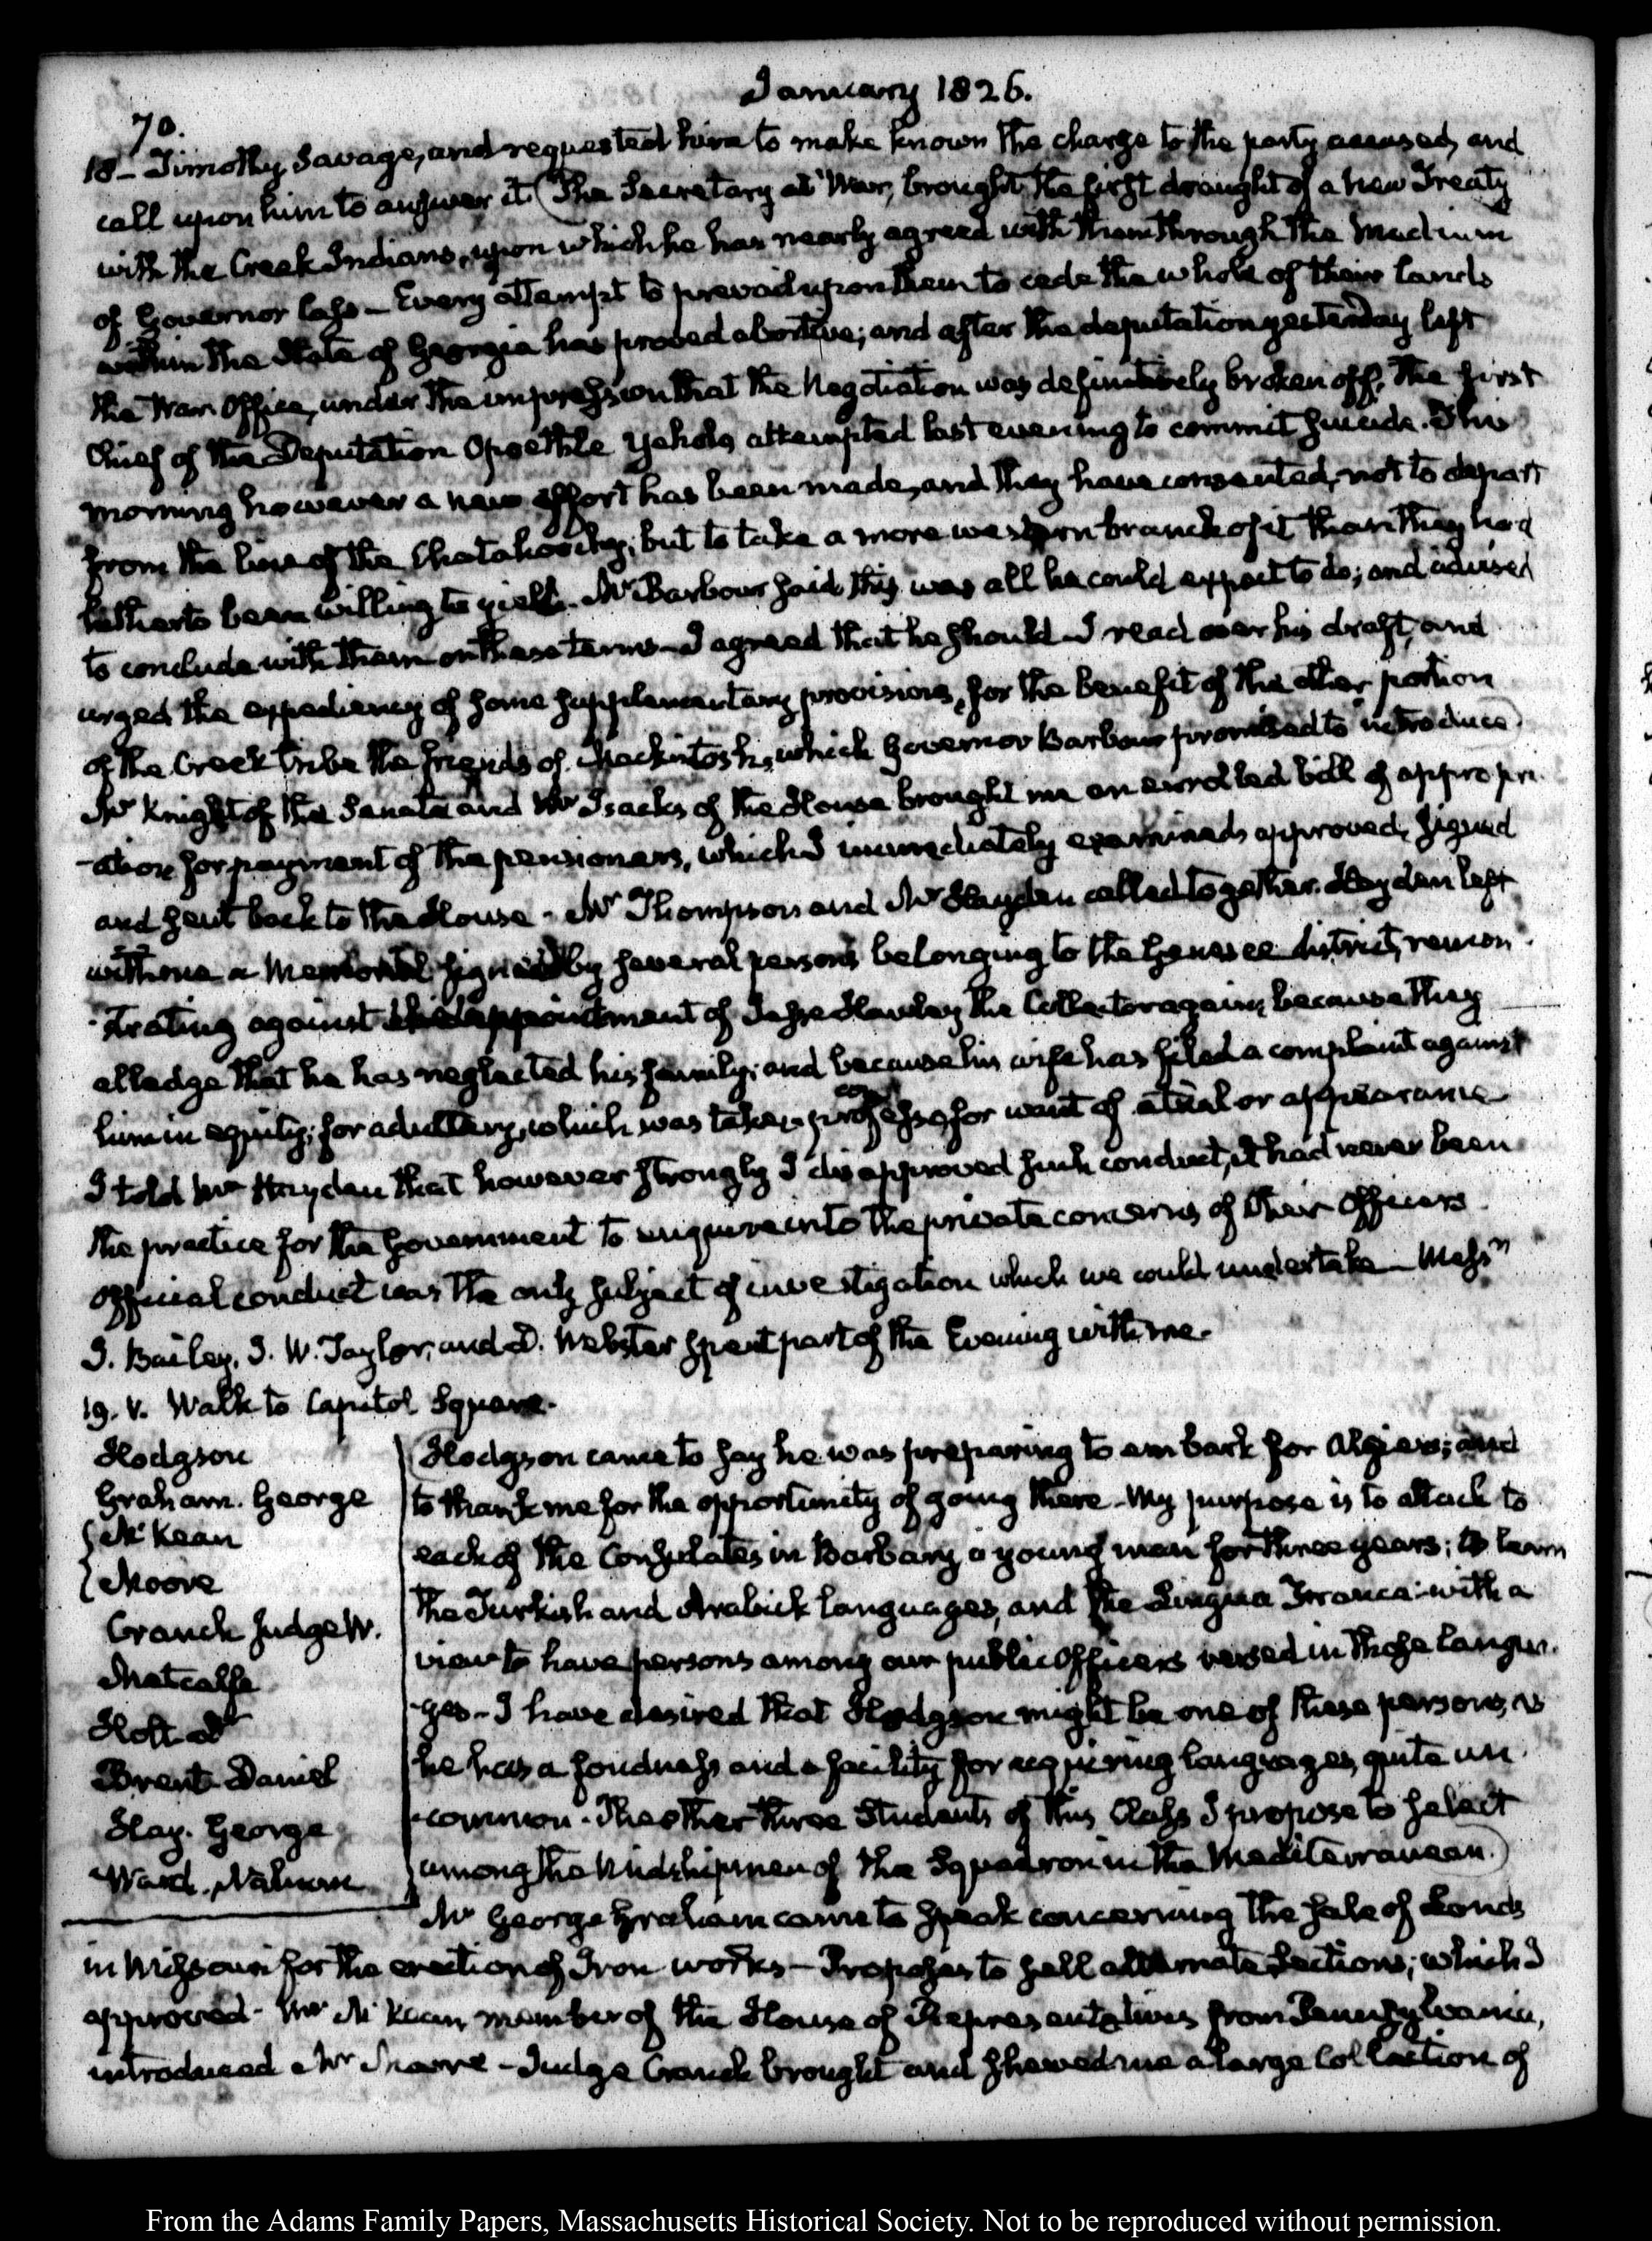 January 1826.
70.
18 - Timothy Savage, and requested him to make known the charge to the party accused, and
call upon him to answer it (The Secretary at War, brought the first draught of a new Treaty
with the Creek Indians, upon which he has nearly agreed with them through the medium
of Governor Cass - Every attempt to prevail upon them to cede the whole of their lands
within the State of Georgia has proved abortive; and after the deputation yesterday left
the War Office, under the impression that the Negotiation was definitively broken off, the first
Chief of the Deputation Opoethle Yoholo attempted last evening to commit suicide. This
morning however a new effort has been made, and they have consented, not to depart
from the line of the Chatahoochy, but to take a more western branch of it than they had
hitherto been willing to yield. Mr Barbour said this was all he could expect to do; and advised
to conclude with them on these terms - I agreed that he should - I read over his draft, and
urged the expediency of some supplementary provisions, for the benefit of the other portion
of the Creek tribe the friends of Mackintosh, which Governor Barbour promised to introduce)
Mr Knight of the Senate and Mr Isacks of the House brought me an enrolled bill of appropri
-ation for payment of the pensioners, which I immediately examined, approved, signed
and sent back to the House - Mr Thompson and Mr Hayden called together. Hayden left
with me a Memorial signed by several persons belonging to the Genesee district, remon-
-strating against the appointment of Jesse Hawley the Collector again, because they
alledge that he has neglected his family; and because his wife has filed a complaint against
him in equity; for adultery, which was taken pro confesso for want of a trial or appearance
I told Mr Hayden that however strongly I disapproved such conduct, it had never been
the practice for the Government to enquire into the private concerns of their Officers.
Official conduct was the only subject of investigation which we could undertake - Messrs
J. Bailey, J. W. Taylor, and D. Webster spent part of the Evening with me.
19. V. Walk to Capitol Square.
Hodgson
Graham. George
McKean
Moore
Cranch Judge W.
Metcalfe
Holt
Brent Daniel
Hay. George
Ward. Nahum
Hodgson came to say he was preparing to embark for Algiers; and
to thank me for the opportunity of going there - My purpose is to attach to
each of the Consulates in Barbary a young man for three years; to learn
the Turkish and Arabick languages, and the Lingua Franca - with a
view to have persons among our public Officers versed in those langua-
-ges - I have desired that Hodgson might be one of these persons, as
he has a fondness and a facility for acquiring languages, quite un-
-common - The other three Students of this Class I propose to select
among the Midshipmen of the Squadron in the Mediterranean.)
Mr George Graham came to speak concerning the sale of Lands
in Missouri for the erection of Iron works - Proposes to sell alternate Sections; which I
approved - Mr McKean, member of the House of Representatives from Pennsylvania,
introduced a Mr Moore - Judge Cranch brought and shewed me a large Collection of
From the Adams Family Papers, Massachusetts Historical Society. Not to be reproduced without permission.